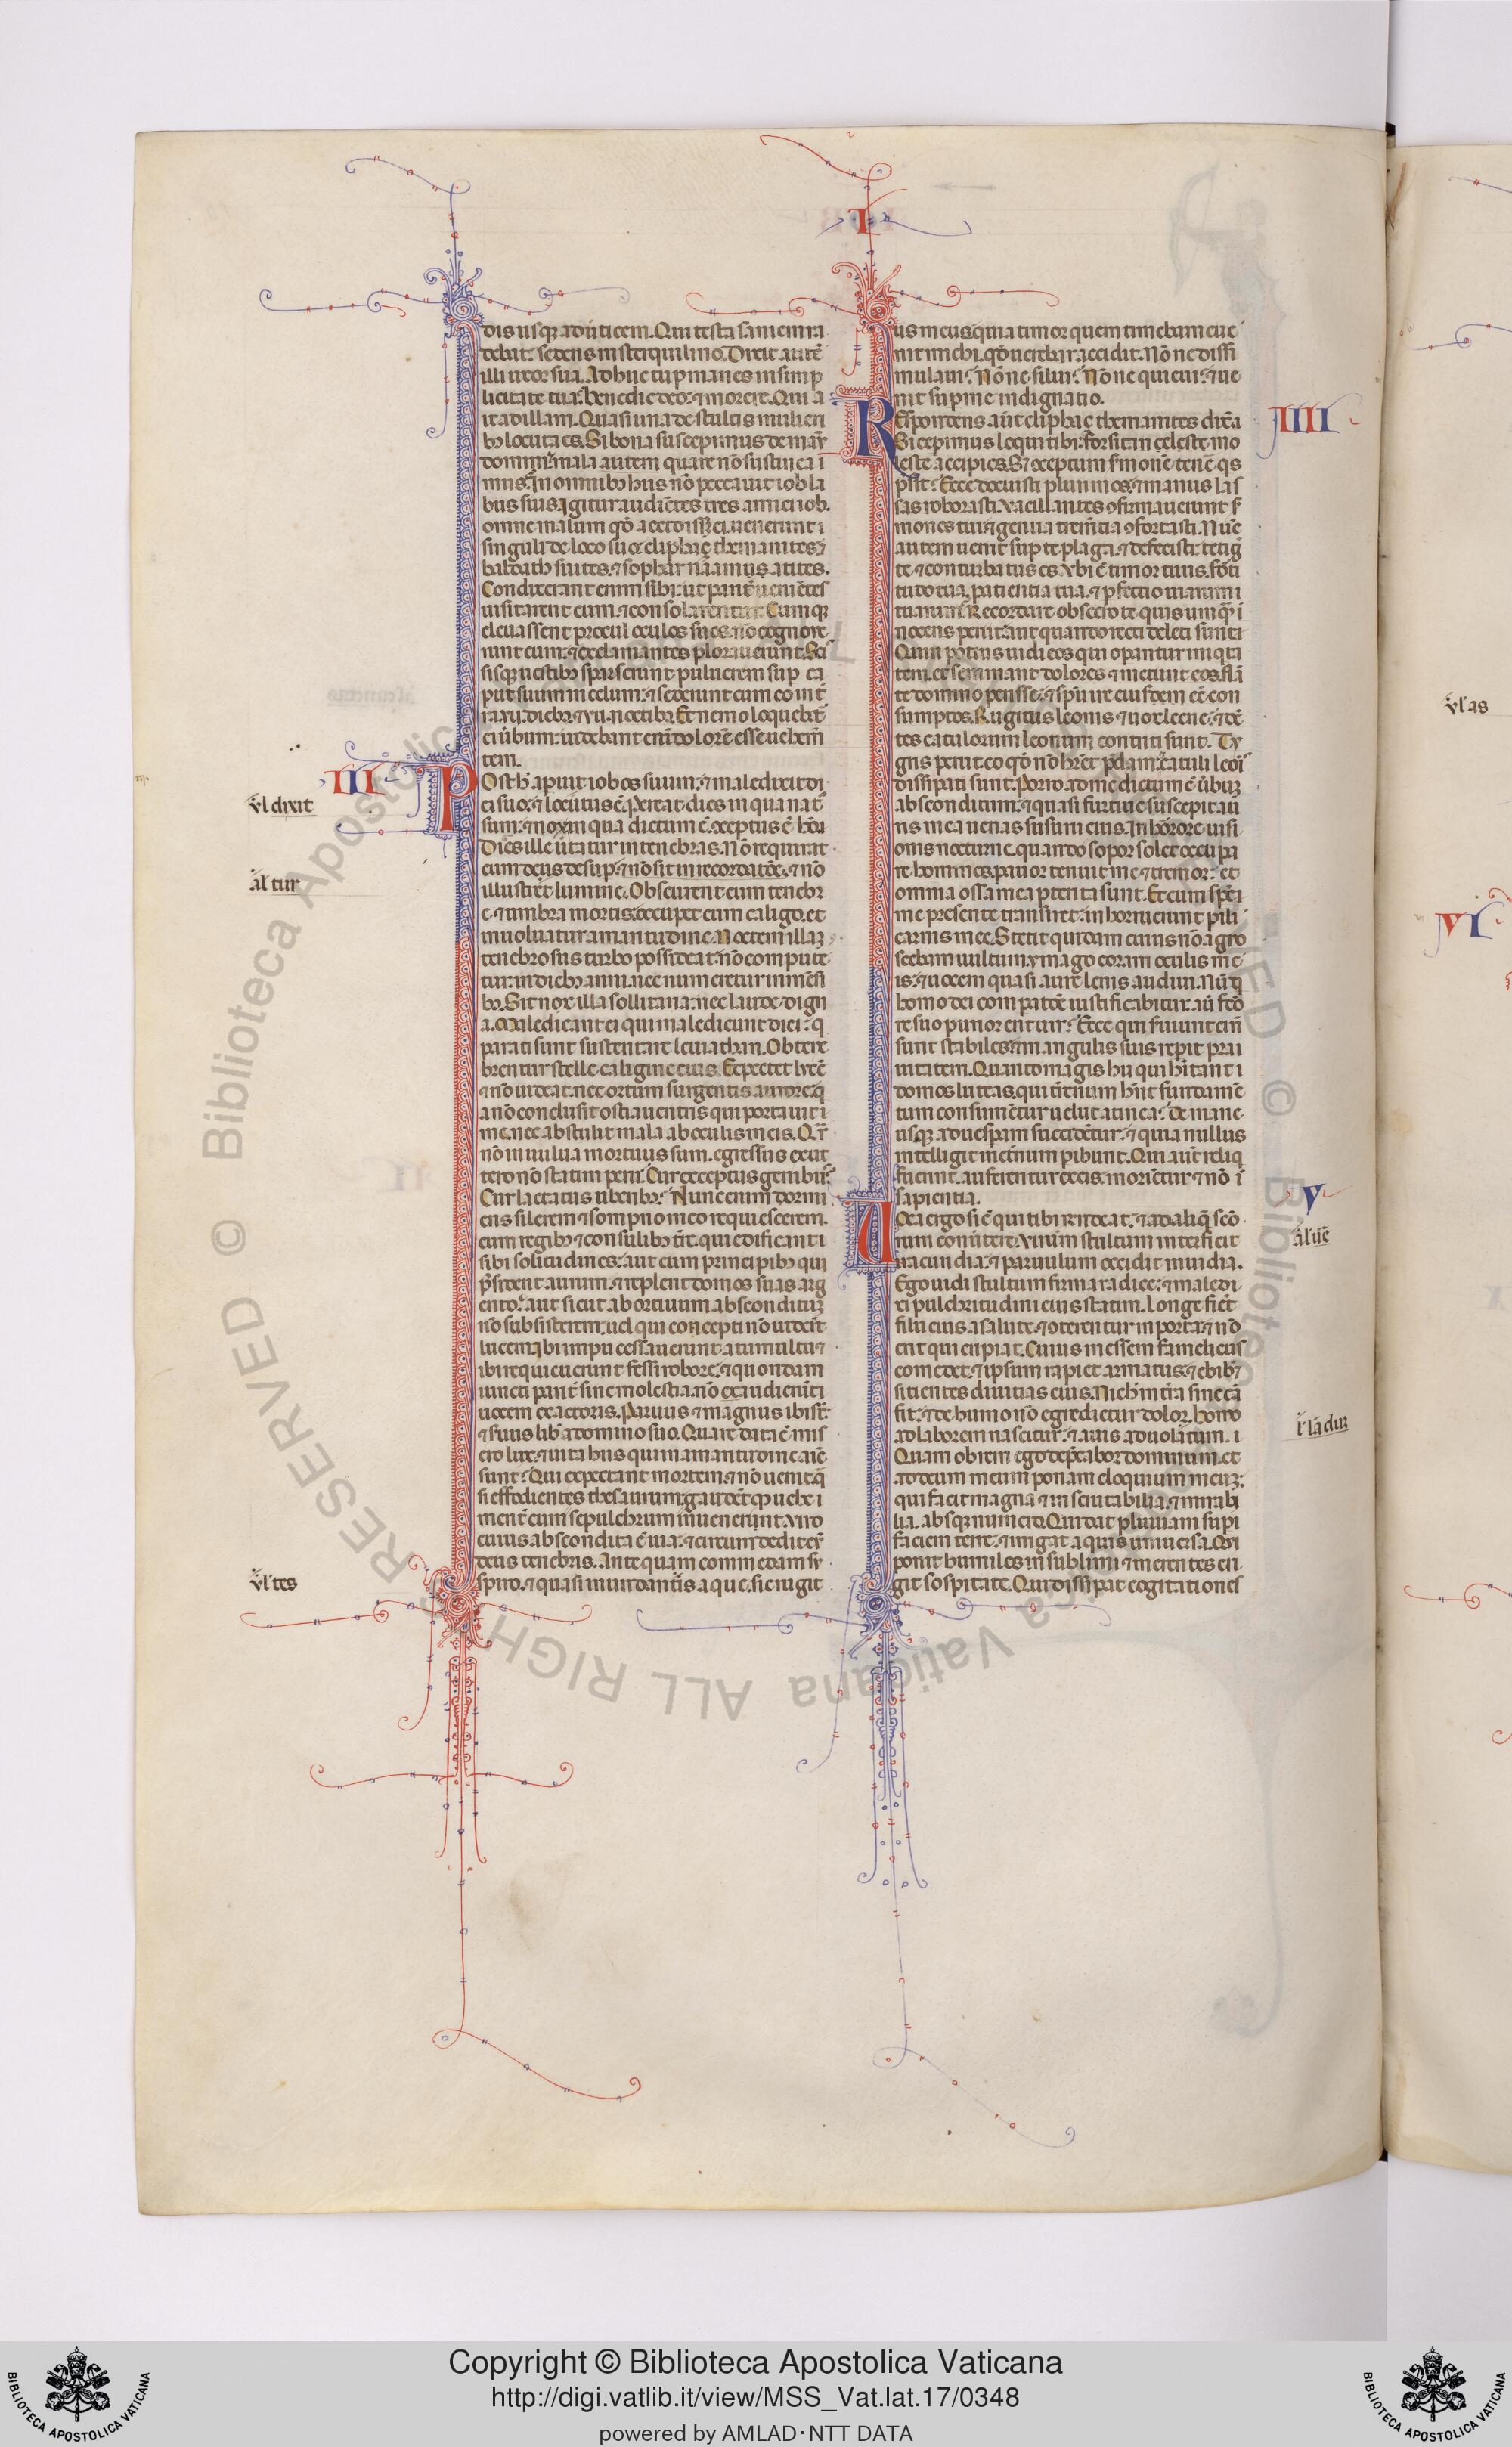 I
dis usq; ad ūticem. Qui testa saniem ra
debat: sedens in sterquilinio. Dixit autē
illi uxor sua. Adhuc tu pmanes in simp
licitate tua? Benedic deo: ⁊ morere. Qui a
it ad illam. Quasi una de stultis mulieri
bꝫ locuta es. Si bona suscepimus de manu
domini: mala autem quare nō sustinea
mus? In omnibꝫ hiis nō peccauit iob la
biis suis. Igitur audiētes tres amici iob.
omne malum qđ accidiss& ei. uenerunt
singuli de loco suo. eliphaz themanites ⁊
baldath suites. ⁊ sophar naamatites.
Condixerant enim sibi: ut parit̄ ueniētes
uisitarent eum. ⁊ consolarentur. Cumq;
eleuassent procul oculos suos. nō cognoue
runt eum: ⁊ exclamantes plorauerunt. Sci
sisq; uestibꝫ sparserunt puluerem sup ca
put suum in celum: ⁊ sederunt cum eo in t̄
ra .vii. diebꝫ ⁊ .vii. noctibꝫ. Et nemo loquebat̄
ei ūbum: uidebant eni dolorē esse uehem̄
tem.
III
POst h̄ apuit iob os suum: ⁊ maledixit di
ei suo: ⁊ locutus ē. Pereat dies in qua nat̄
sum: ⁊ nox in qua dictum ē. cōceptus ē hō.
Dies ille ūtatur in tenebras. Nō requirat
eum deus desup: ⁊ nō sit in recordatōe. ⁊ nō
illustret̄ lumine. Obscurent eum tenebr
e. ⁊ umbra mortis. occupet eum caligo. et
inuoluatur amaritudine. Noctem illaꝫ
tenebrosus turbo possideat: nō compute
tur in diebꝫ anni. nec numeretur in mēsi
bꝫ. Sit nox illa sollitaria: nec laude dign
a. Maledicant ei qui maledicunt diei: q
parati sunt suscitare leuiathan. Obtene
brentur stelle caligine eius. Expectet lucē
⁊ nō uideat. nec ortum surgentis aurore. q
a nō conclusit ostia uentris qui portauit
me. nec abstulit mala ab oculis meis. Qr̄
nō in uulua mortuus sum. egressus ex ut
tero nō statim perii? Cur exceptus genibꝫ?
Cur lactatus uberibꝫ? Nunc enim dormi
ens silerem ⁊ sompno meo requiescerem.
cum regibꝫ ⁊ consulibꝫ tr̄e. qui edificant
sibi solitudines: aut cum principibꝫ qui
p̄sident aurum. ⁊ replent domos suas arg
ento: aut sicut abortiuum absconditum
nō subsisterem. uel qui concepti nō uiderūt
lucem. Ibi impii cessauerunt a tumultu ⁊
ibi requieuerunt fessi robore. ⁊ quondam
iuncti parit̄ sine molestia. nō exaudierūt
uocem exactoris. Paruus ⁊ magnus ibi st̄:
⁊ seruus lib̄ a domino suo. Quare data ē mis
ero lux. ⁊ uita hiis qui in amaritudine aīe
sunt? Qui expectant mortem. ⁊ nō uenit. q̄
si effodientes thesaurum: gaudēt q; uehe
ment̄ cum sepulchrum inuenerint. Uiro
cuius abscondita ē uia. ⁊ circumdedit eū
deus tenebris. Antequam commedam sus
piro. ⁊ quasi inundantis aque. sic rugit
ūl dixit
al tur
ūl tes
us meus quia timor quem timebam eue
nit michi. qđ uerebar accidit. Nōne dissi
mulaui? Nōne silui? Nōne quieui? ⁊ ue
nit sup me indignatio.
IIII
REspondens aūt eliphaz themanites dixit.
Si ceperimus loqui tibi: forsitan celeste mo
leste accipies. Sz conceptum s̄monē tenē qs
p̄lit? Ecce docuisti plurimos. ⁊ manus las
sas roborasti. Uacillantes ꝯfirmauerunt s̄
mones tui: ⁊ genua trem̄tia ꝯfortasti. Nūc
autem uenit sup te plaga. ⁊ defecisti: tetiḡ
te ⁊ conturbatus es. Ubi ē timor tuus. forti
tudo tua. patientia tua. ⁊ pfectio uiarum
tuarum? Recordare obsecro te. quis umq̄
nocens periit: aut quando recti deleti sunt.
Quin potius uidi eos qui opantur iniqta
tem. ⁊ seminant dolores ⁊ metunt eos. flā
te domino perisse. ⁊ spū ire eiusdem eē con
sumptos. Rugitus leonis ⁊ uox leene. ⁊ dē
tes catulorum leonum contriti sunt. Ty
gris periit eo qđ nō hr̄et p̄dam: catuli leoī
dissipati sunt. Porro ad me dictum ē ūbuꝫ
absconditum: ⁊ quasi furtiue suscepit au
ris mea uenas susurri eius. In horrore uisi
onis nocturne. quando sopor solet occupa
re homines. pauor tenuit me ⁊ tremor: et
omnia ossa mea pterrita sunt. Et cum spc̄
me presente transiret. inhorruerunt pili
carnis mee. Stetit quidam cuius nō agno
scebam uultum. ymago coram oculis me
is. ⁊ uocem quasi aure lenis audiui. Nūq
homo dei compatōe iustificabitur: aū fcō
re suo purior erit uir? Ecce qui suiunt ei
sunt stabiles. ⁊ in angelis suis reperit prau
uitatem. Quanto magis hii qui hitant
domos luteas. qui terrenum hn̄t fundame
tum consumētur uelut a tinea? De mane
usq; ad uespam succidētur: ⁊ quia nullus
intelligit in et̄num pibunt. Qui aūt reliq
fuerint auferentur ex eis. moriētur ⁊ nō ī
sapientia.
V
UOca ergo si ē qui tibi respondeat. ⁊ ad aliq̄ scō
rum conūtere. Uirum stultum interficit
iracundia. ⁊ paruulum occidit inuidia.
Ego uidi stultum firma radice: ⁊ maledi
xi pulchritudini eius statim. Longe fiēt
filii eius a salute. ⁊ ꝯterentur in porta. ⁊ nō
erit qui eripiat. Cuius messem famelicus
comedet. ⁊ ipsum rapiet armatus. ⁊ ebibēt
sitientes diuitias eius. Nich̄ in tr̄a sine cā
fit. ⁊ de humo nō egredietur dolor. Homo
ad laborem nascitur. ⁊ auis ad uolatum.
Quam obrem ego dep̄cabor dominum. et
ad deum meum ponam eloquium meuꝫ:
qui facit magna ⁊ inscrutabilia. ⁊ mirabi
lia. absq; numero. Qui dat pluuiam sup
faciem terre. ⁊ irrigat aquis uniuersa. Qui
ponit humiles in sublimi. ⁊ merentes eri
git sospitate. Qui dissipat cogitationes
al ue
VI
ūl as
Copyright © Biblioteca Apostolica Vaticana
http://digi.vatlib.it/view/MSS_Vat.lat.17/0348
powered by AMLAD·NTT DATA
BIBLIOTECA APOSTOLICA VATICANA
BIBLIOTECA APOSTOLICA VATICANA
© Biblioteca Apostolica Vaticana ALL RIGHTS RESERVED